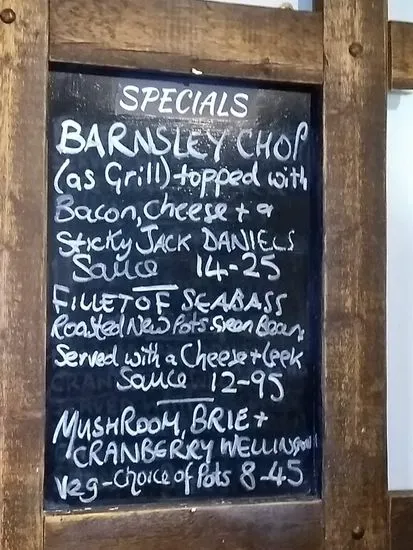 SPECIALS
BARNSLEY CHOP
(as Grill) topped with
Bacon, Cheese + a
Sticky JACK DANIELS
Sauce 14-25
FILLET OF SEABASS
Roasted New Pots. Green Beans,
Served with a Cheese + Leek
Sauce 12-95
MUSHROOM, BRIE +
CRANBERRY WELLINGTON
Veg - Choice of Pots 8-45